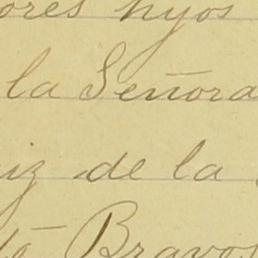 ores hyos
la Señora
iz de la
tó Bravos